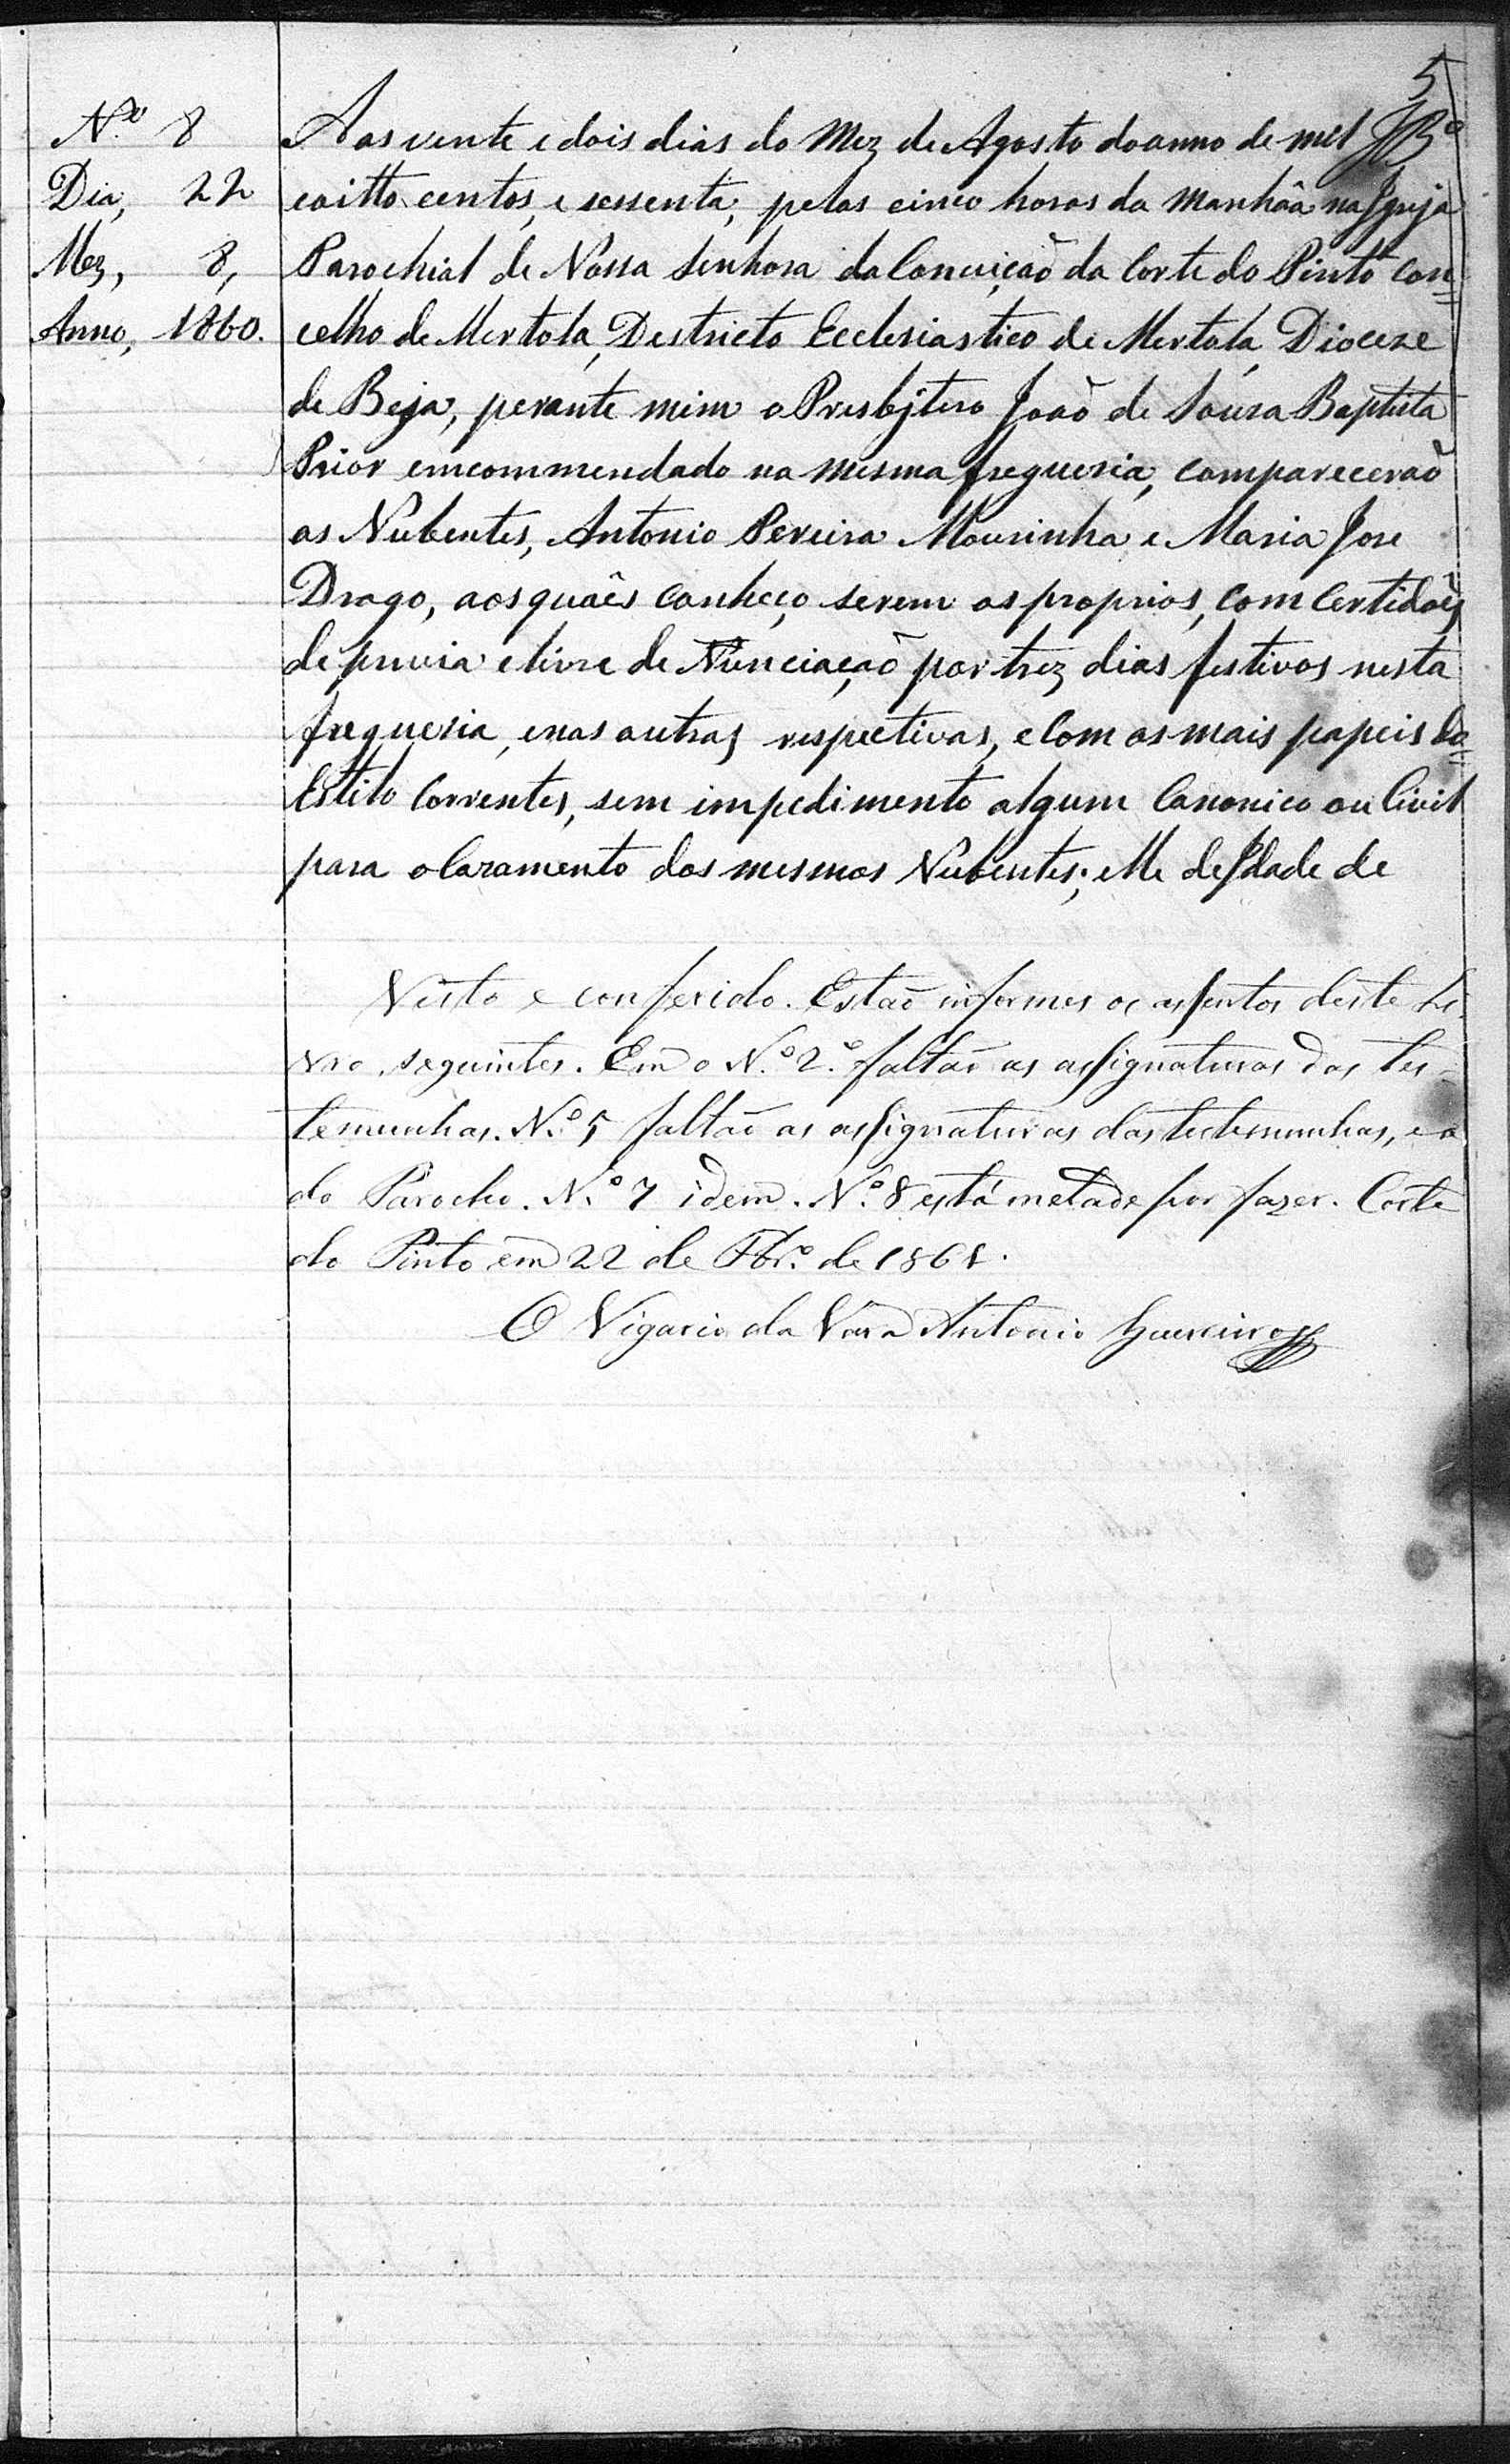 5
JB.ª
N.º 8
Dia, 22
Mez, 8,
Anno, 1860.
Aos vente e dois dias do Mez de Agosto do anno de mil
eoitto centos, e sessenta, pelas cinco horas da Manhãa na Igreja
Parochial de Nossa Senhora da Conceição da Corte do Pinto con=
celho de Mertola, Destricto Ecclesiastico de Mertola, Dioceze
de Beja, perante mim o Presbjtero João de Souza Baptista
Prior emcommendado na mesma freguezia, comparecerão
os Nubentes, Antonio Pereira Mourinha e Maria Jose
Drago, aos quaês conheço serem os proprios, com Certidoẽs
de puvia e livre de Nunciação por trez dias festivos nesta
freguezia, enas outras respectivas, e Com os mais papeis do=
Estilo Correntes, sem impedimento algum Canonico ou Civil
para o Cazamento dos mesmos Nubentes; elle de Idade de
Visto e conferido. Estão informes os assentos deste Li-
vro, seguintes. Em o N.º 2.º faltão as assignaturas das tes-
temunhas. N.º 5 faltão as assignaturas das testemunhas, e a
do Parocho. N.º 7 idem. N.º 8 está metade por fazer. Corte
do Pinto em 22 de Fbr.º de 1861.
O Vigario da Vara Antonio Guerreiro